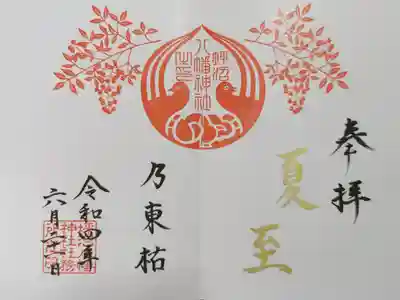 奉拝
夏至
八幡神社
之印
乃東枯
令和四年
六月二十一日